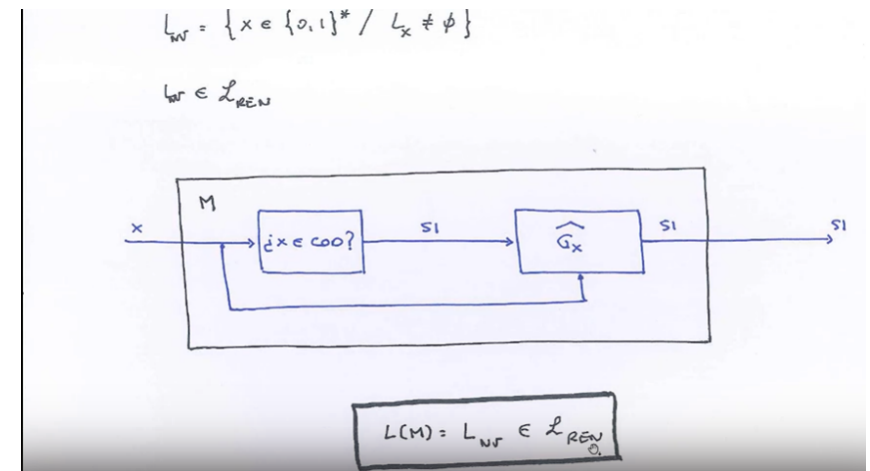 L_nv = { x ∈ {0,1}* / L_x ≠ ∅ }
L_nv ∈ ℒ_REN
M
x
¿x ∈ COD?
SI
Ĝ_x
SI
SI
L(M) = L_nv ∈ ℒ_REN